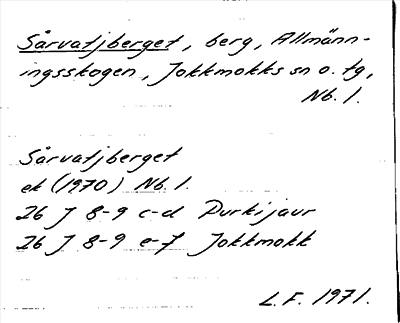 Sårvatjberget, berg, Allmänn-
ingsskogen, Jokkmokks sn o. tg,
Nb. l.
Sårvatjberget
ek (1970) Nb. l.
26 J 8-9 c-d Purkijaur
26 J 8-9 e-f Jokkmokk
L.F. 1971.